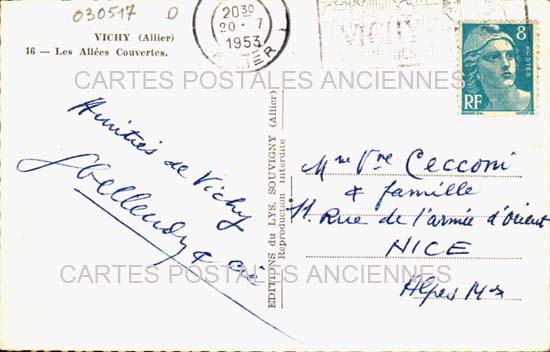 030517 D
VICHY (Allier)
16 — Les Allées Couvertes.
20 30
20 - 7
1953
ALLIER
VICHY
8
POSTES
RF
CARTES POSTALES ANCIENNES
Amitiés de Vichy
EDITIONS du LYS, SOUVIGNY (Allier)
Reproduction Interdite
Mme Vve Cecconi
& famille
11. Rue de l'armée d'Orient
NICE
Alpes Mmes
CARTES POSTALES ANCIENNES